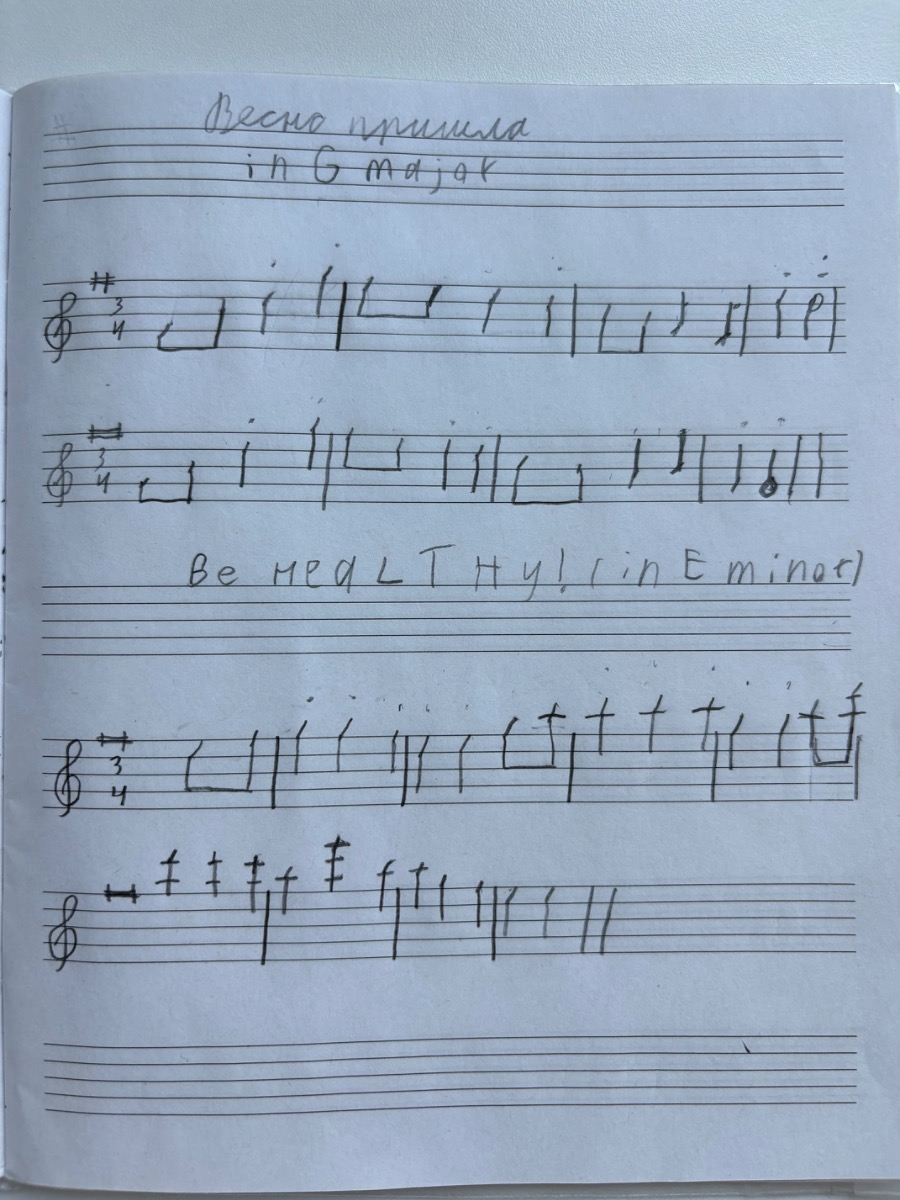 Весна пришла
in G major
3
4
3
4
Be HeaLTHy! (in E minor)
3
4